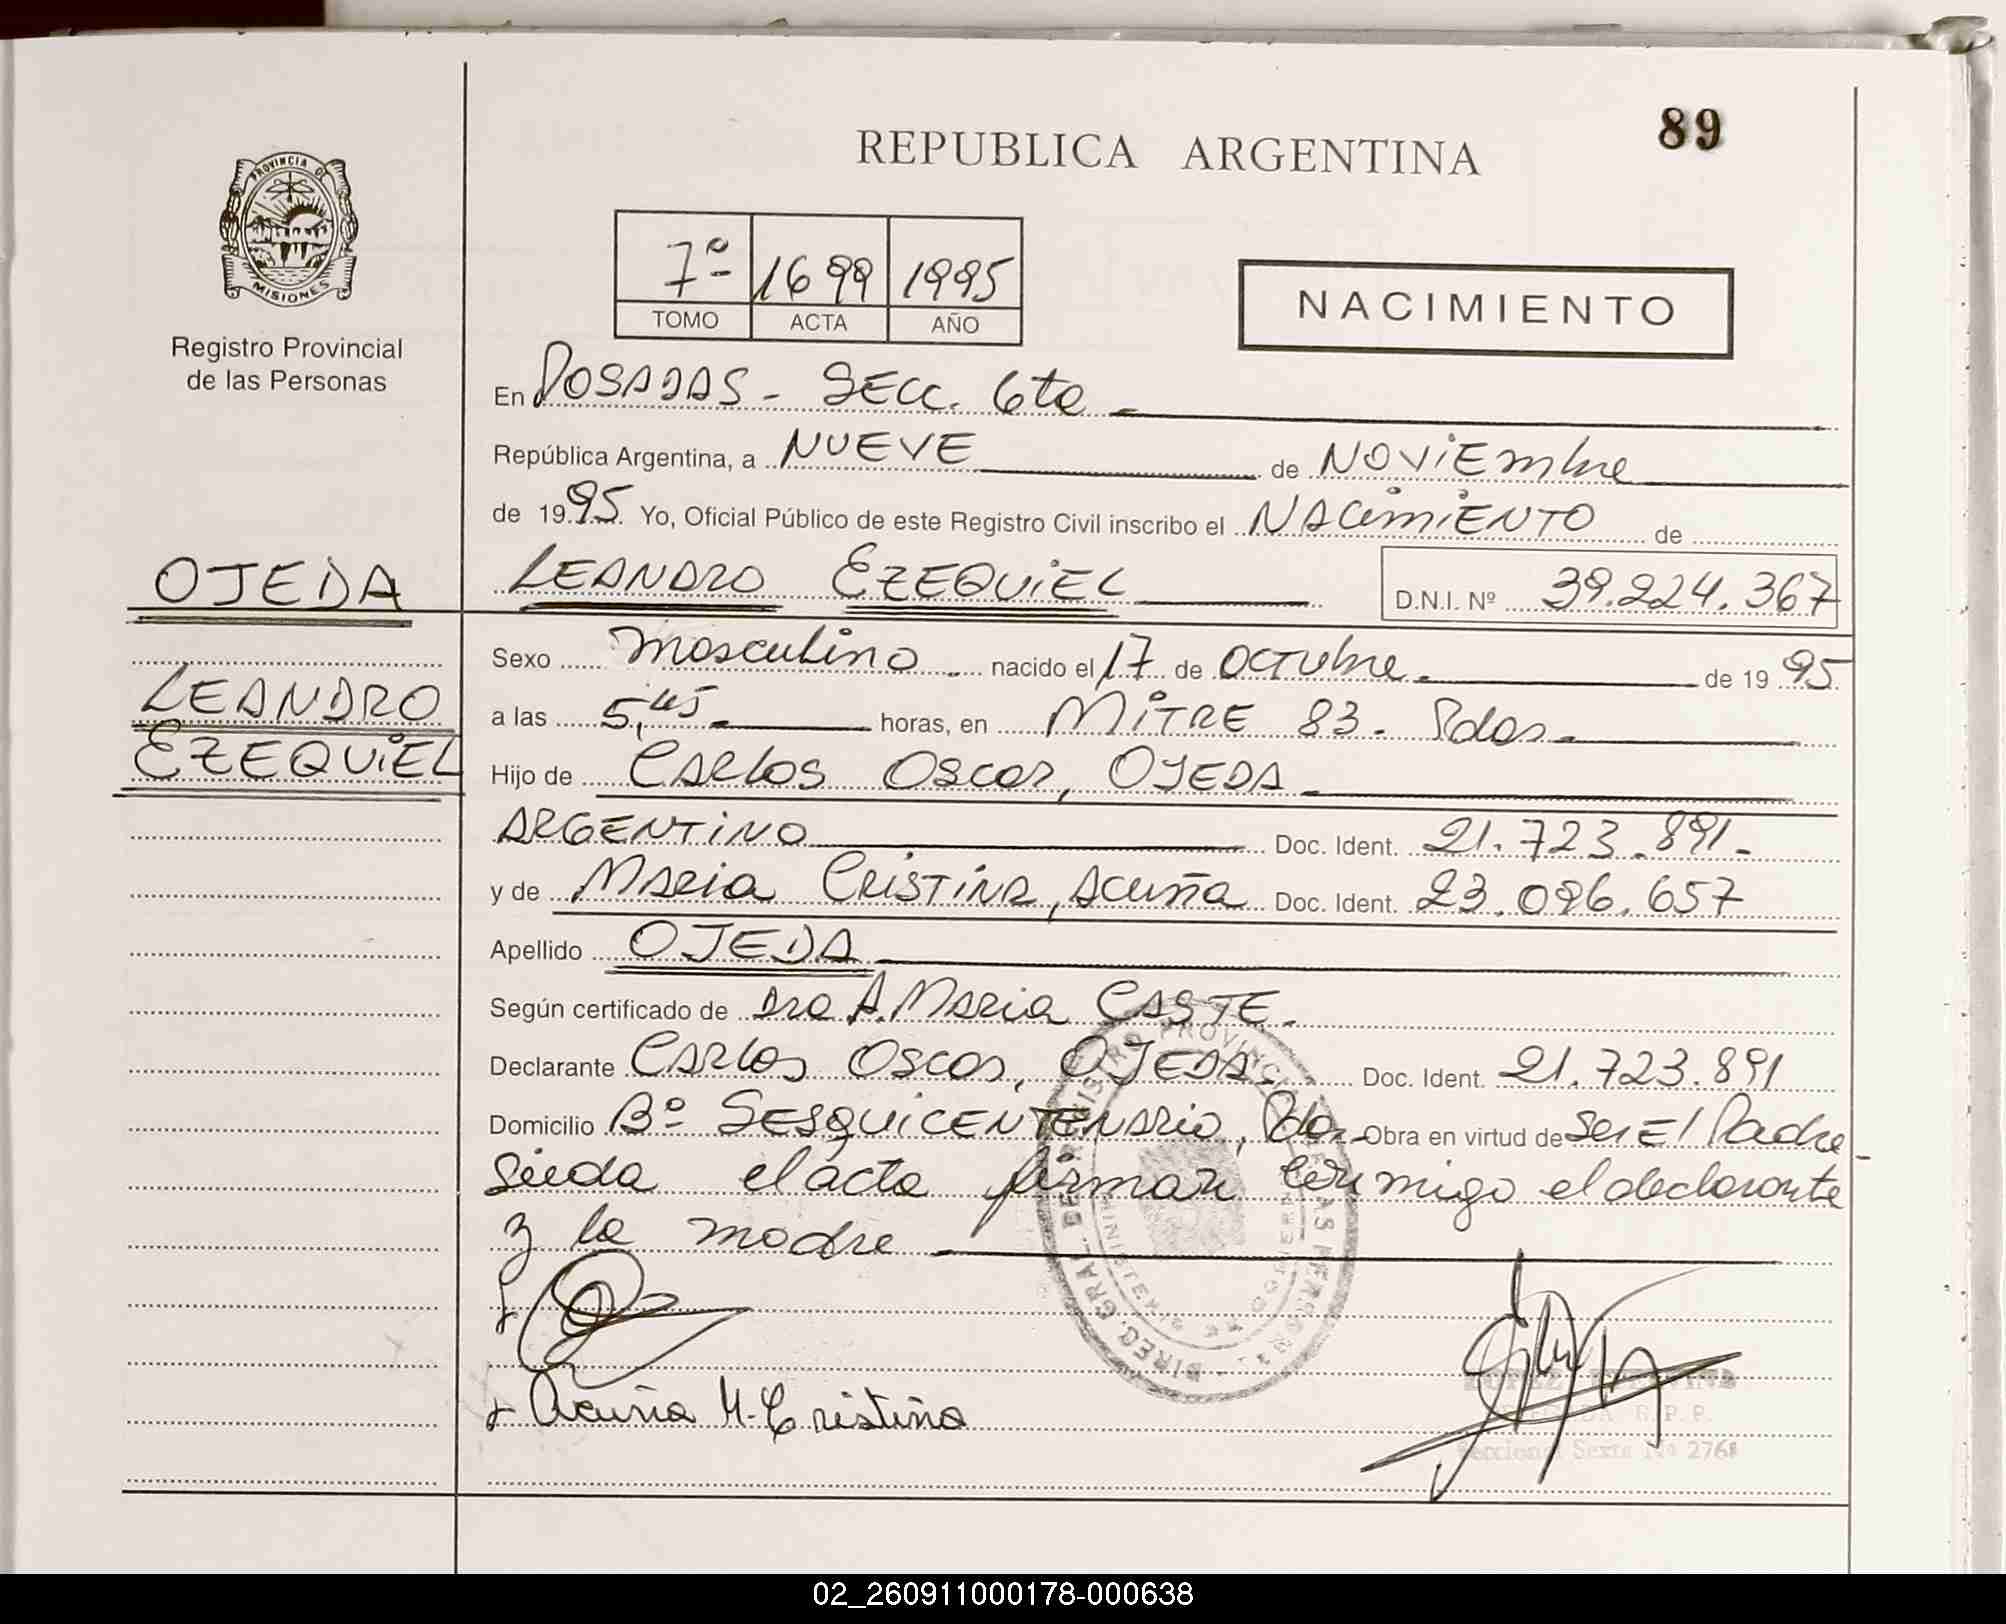 89
REPUBLICA ARGENTINA
PROVINCIA DE
MISIONES
Registro Provincial
de las Personas
7º 1699 1995
TOMO ACTA AÑO
NACIMIENTO
En POSADAS - SECC. 6ta
República Argentina, a NUEVE de NOViEmbre
de 1995 Yo, Oficial Público de este Registro Civil inscribo el NACimiENTO de
OJEDA
LEANDRO EZEQUiEL D.N.I. Nº 39.224.367
Sexo masculino nacido el 17 de OCTUbre de 1995
LEANDRO
EZEQUiEL
a las 5,45 horas, en MiTRE 83. Pdas.
Hijo de CARLOS OSCAR, OJEDA
ARGENTiNO Doc. Ident. 21.723.891.
y de MARIA CRiSTiNA, ACUÑA Doc. Ident. 23.096.657
Apellido OJEDA
Según certificado de DRA A. MARIA CASTE.
Declarante CARLOS OSCAR, OJEDA. Doc. Ident. 21.723.891
Domicilio Bº SESQUICENTENARIO, Pdas. Obra en virtud de ser El Padre
el acta firman conmigo el declarante
y la madre
Acuña M. Cristina
DIREC. GRAL. DE REGISTRO PROVINCIAL DE LAS PERSONAS
R.P.P.
Seccional Sexta Nº 2768
02_260911000178-000638